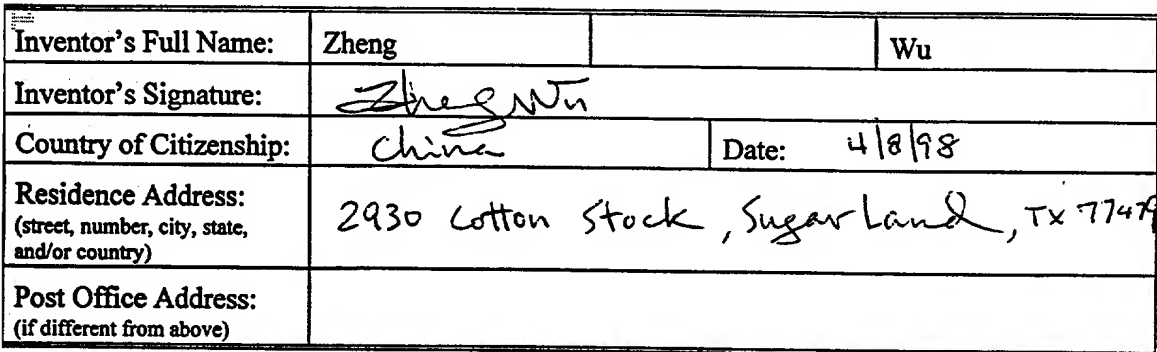 Inventor's Full Name: Zheng Wu
Inventor's Signature: Zheng Wu
Country of Citizenship: China Date: 4/8/98
Residence Address:
(street, number, city, state,
and/or country)
2930 Cotton Stock, Sugar Land, TX 77479
Post Office Address:
(if different from above)